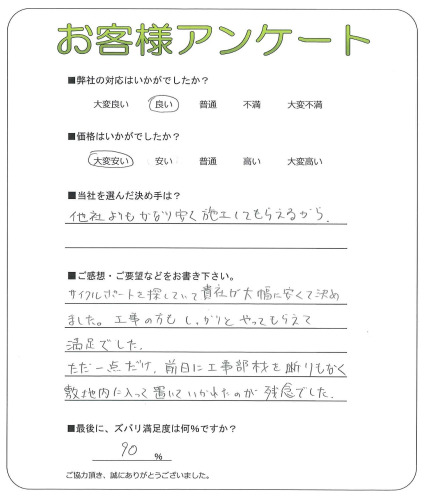 お客様アンケート
■弊社の対応はいかがでしたか？
大変良い 良い 普通 不満 大変不満
■価格はいかがでしたか？
大変安い 安い 普通 高い 大変高い
■当社を選んだ決め手は？
他社よりもかなり安く施工してもらえるから.
■ご感想・ご要望などをお書き下さい。
サイクルポートを探していて貴社が大幅に安くて決め
ました。工事の方もしっかりとやってもらえて
満足でした.
ただ一点だけ,前日に工事部材を断りもなく
敷地内に入って置いていかれたのが残念でした.
■最後に、ズバリ満足度は何%ですか？
90 %
ご協力頂き、誠にありがとうございました。